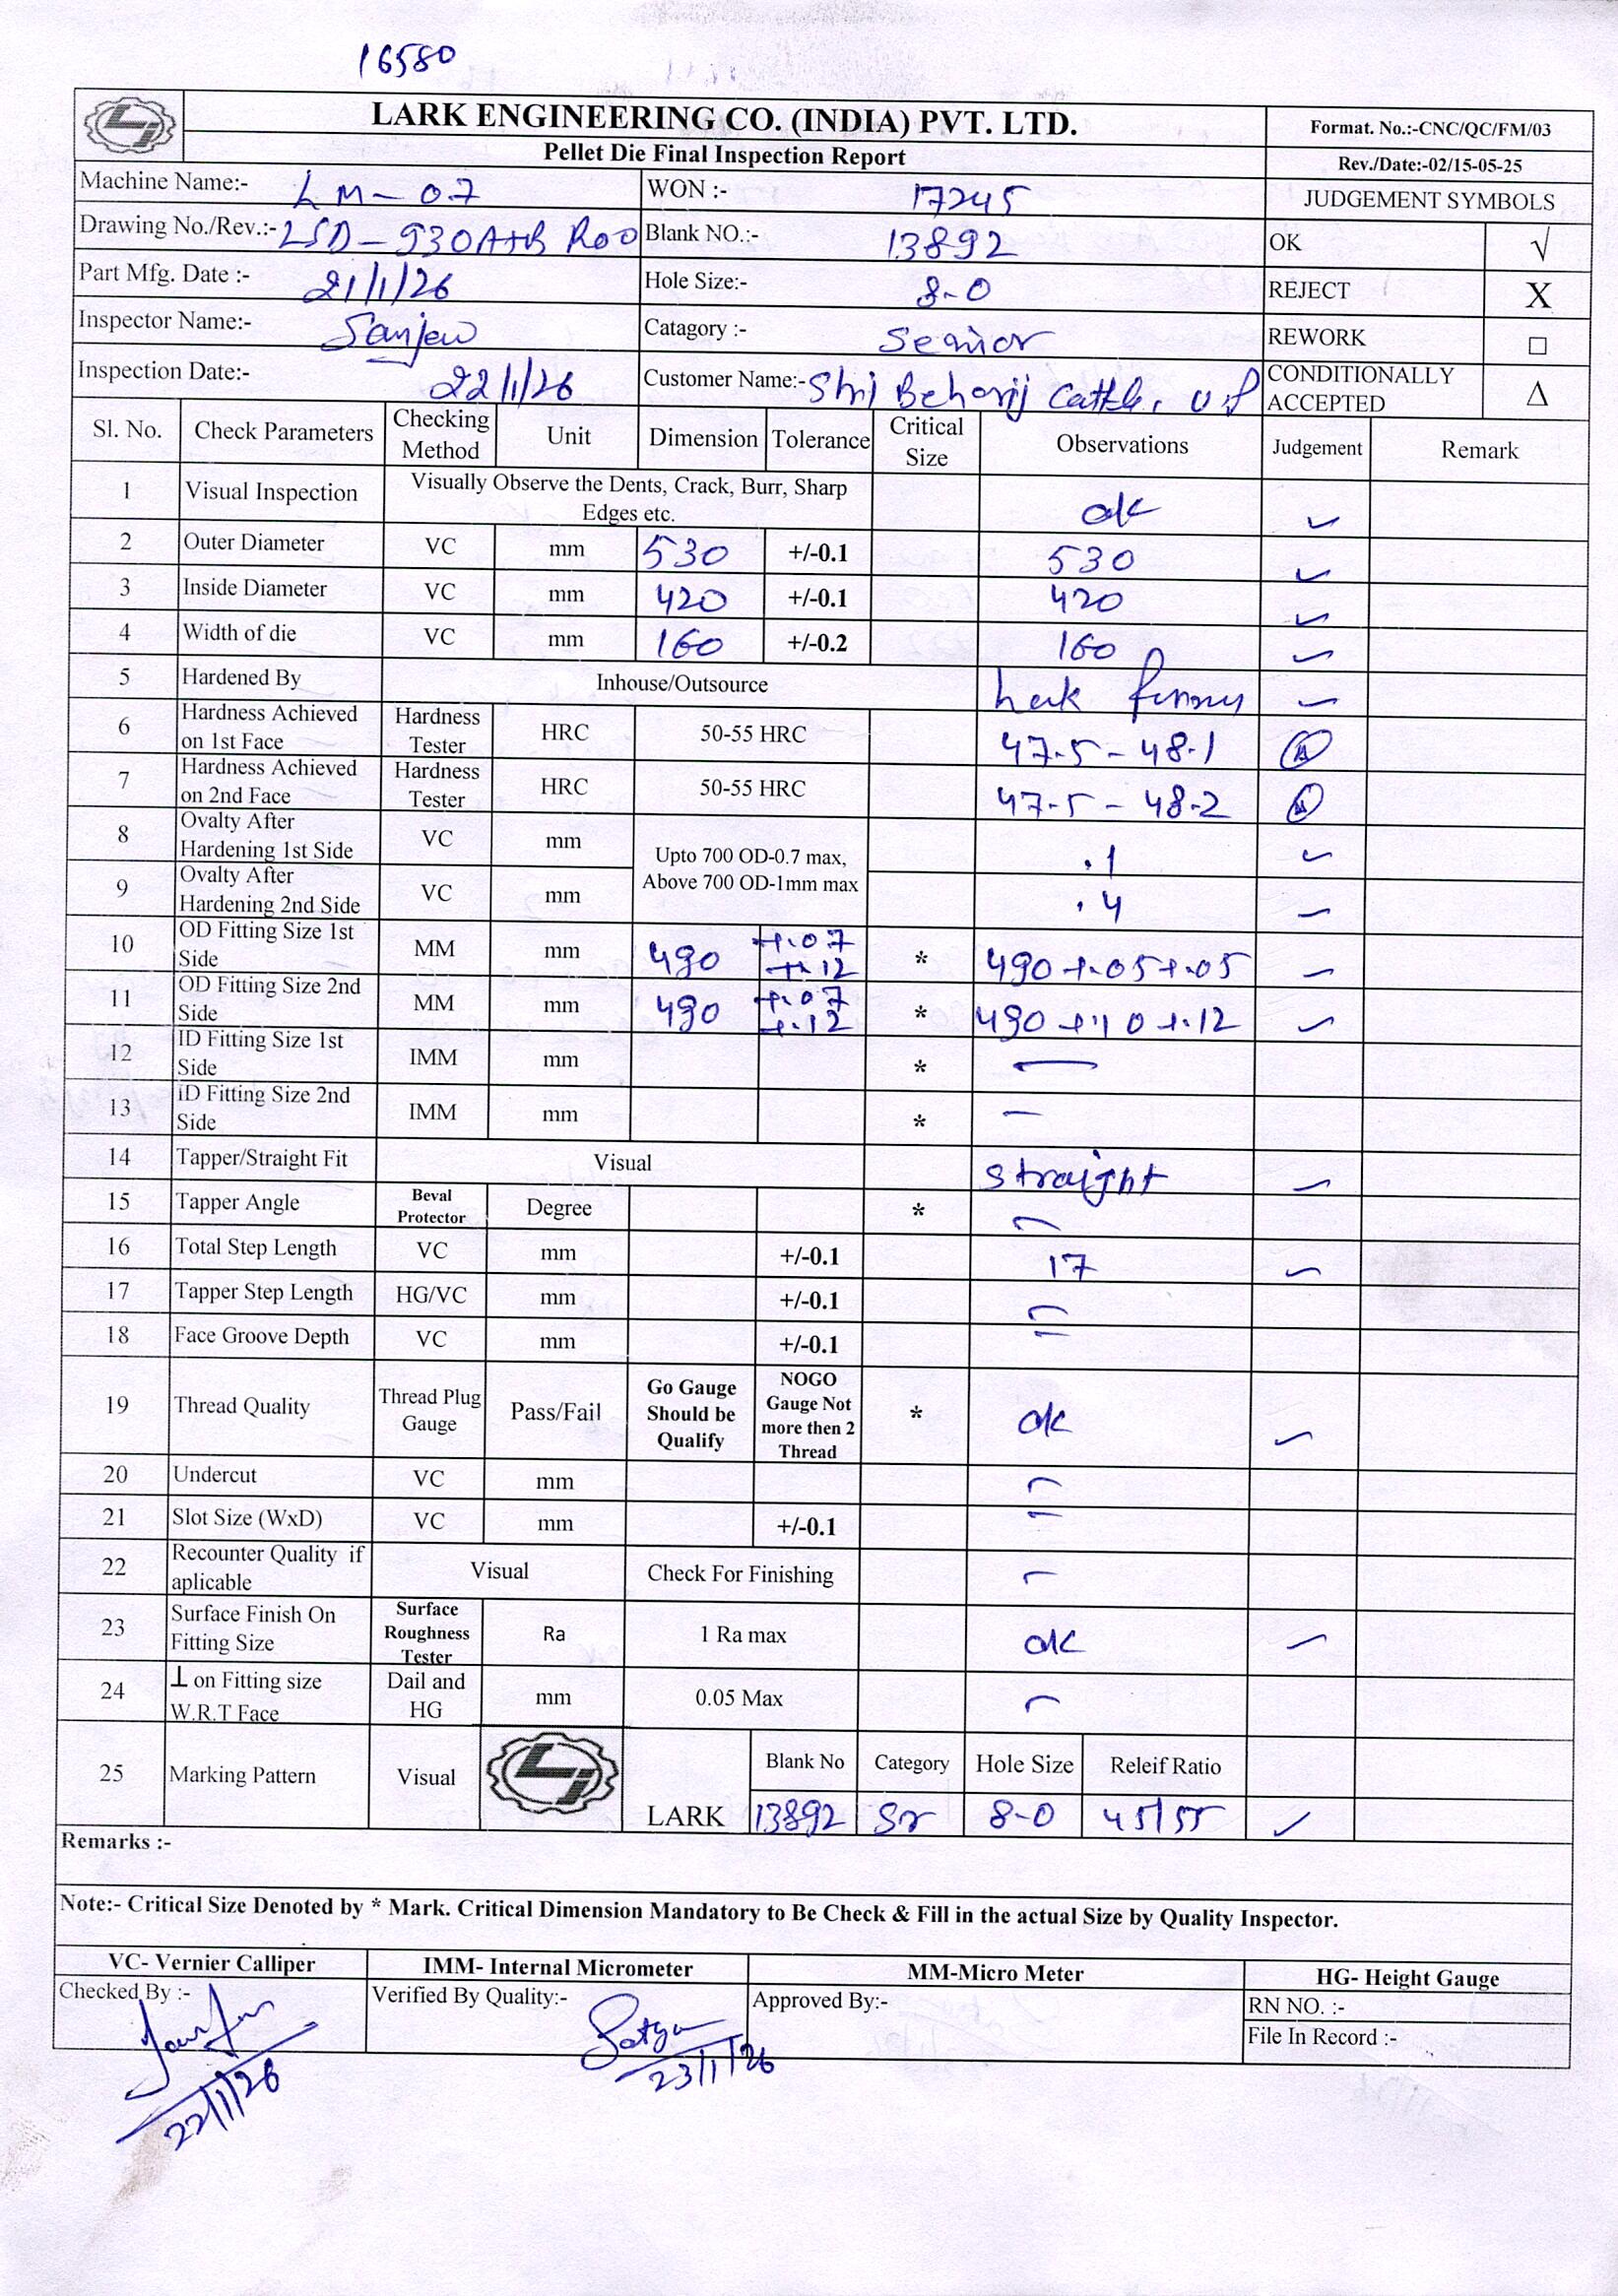 16580
LARK ENGINEERING CO. (INDIA) PVT. LTD.
Format. No.:-CNC/QC/FM/03
Pellet Die Final Inspection Report
Rev./Date:-02/15-05-25
Machine Name:- LM-07 WON :- 17245 JUDGEMENT SYMBOLS
Drawing No./Rev.:- LSD-930A+B R00 Blank NO.:- 13892 OK √
Part Mfg. Date :- 21/1/26 Hole Size:- 8-0 REJECT X
Inspector Name:- Sanjeev Catagory :- Senior REWORK □
Inspection Date:- 22/1/26 Customer Name:- Shri Beharij Cattle, U.P CONDITIONALLY ACCEPTED Δ
Sl. No. Check Parameters Checking Method Unit Dimension Tolerance Critical Size Observations Judgement Remark
1 Visual Inspection Visually Observe the Dents, Crack, Burr, Sharp Edges etc. ok ✓
2 Outer Diameter VC mm 530 +/-0.1 530 ✓
3 Inside Diameter VC mm 420 +/-0.1 420 ✓
4 Width of die VC mm 160 +/-0.2 160 ✓
5 Hardened By Inhouse/Outsource ✓
6 Hardness Achieved on 1st Face Hardness Tester HRC 50-55 HRC 47.5 - 48.1
7 Hardness Achieved on 2nd Face Hardness Tester HRC 50-55 HRC 47.5 - 48.2
8 Ovalty After Hardening 1st Side VC mm Upto 700 OD-0.7 max, Above 700 OD-1mm max .1 ✓
9 Ovalty After Hardening 2nd Side VC mm .4 ✓
10 OD Fitting Size 1st Side MM mm 490 +.07 +.12 * 490 +.05 +.05 ✓
11 OD Fitting Size 2nd Side MM mm 490 +.07 +.12 * 490 +.10 +.12 ✓
12 ID Fitting Size 1st Side IMM mm * —
13 iD Fitting Size 2nd Side IMM mm * —
14 Tapper/Straight Fit Visual straight ✓
15 Tapper Angle Beval Protector Degree * —
16 Total Step Length VC mm +/-0.1 17 ✓
17 Tapper Step Length HG/VC mm +/-0.1 —
18 Face Groove Depth VC mm +/-0.1 —
19 Thread Quality Thread Plug Gauge Pass/Fail Go Gauge Should be Qualify NOGO Gauge Not more then 2 Thread * ok ✓
20 Undercut VC mm —
21 Slot Size (WxD) VC mm +/-0.1 —
22 Recounter Quality if aplicable Visual Check For Finishing —
23 Surface Finish On Fitting Size Surface Roughness Tester Ra 1 Ra max ok ✓
24 ⊥ on Fitting size W.R.T Face Dail and HG mm 0.05 Max —
25 Marking Pattern Visual LARK Blank No Category Hole Size Releif Ratio
13892 Sr 8-0 45/55 ✓
Remarks :-
Note:- Critical Size Denoted by * Mark. Critical Dimension Mandatory to Be Check & Fill in the actual Size by Quality Inspector.
VC- Vernier Calliper IMM- Internal Micrometer MM-Micro Meter HG- Height Gauge
Checked By :- Verified By Quality:- Satya Approved By:- RN NO. :-
File In Record :-
22/1/26 23/1/26